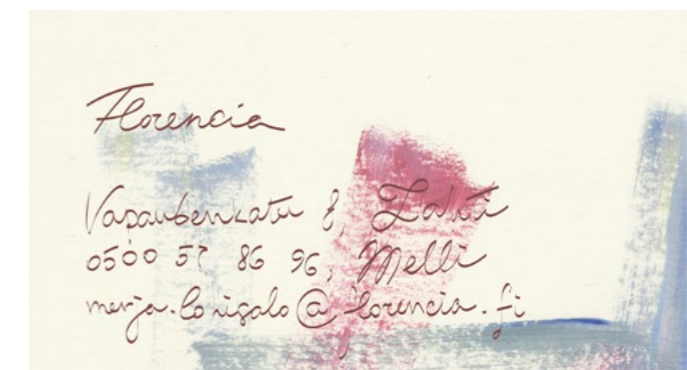 Florencia
Vapaudenkatu 8, Lahti
0500 57 86 96, Melli
@florencia.fi